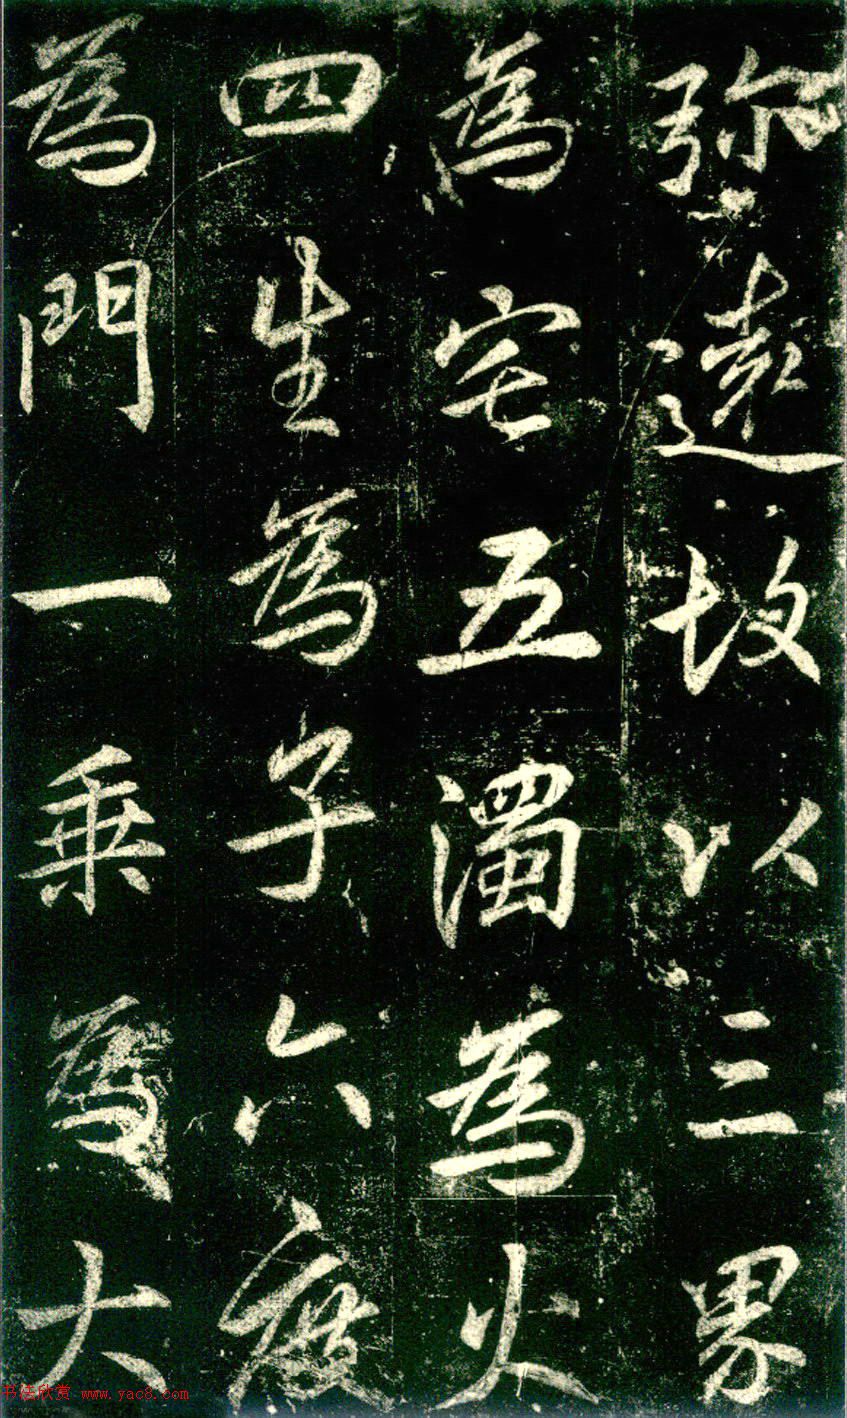 弥遠故以三界
為宅五濁為火
四生為子六度
為門一乗為大
书法欣赏 www.yac8.com